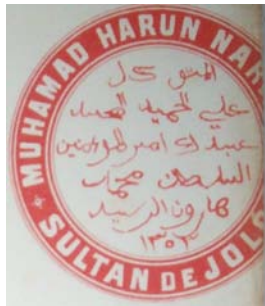 MUHAMAD HARUN NAR
SULTAN DE JOLO
المتوكل
على الحميد المجيد
عبدك امير المؤمنين
السلطان محمد
هارون الرشيد